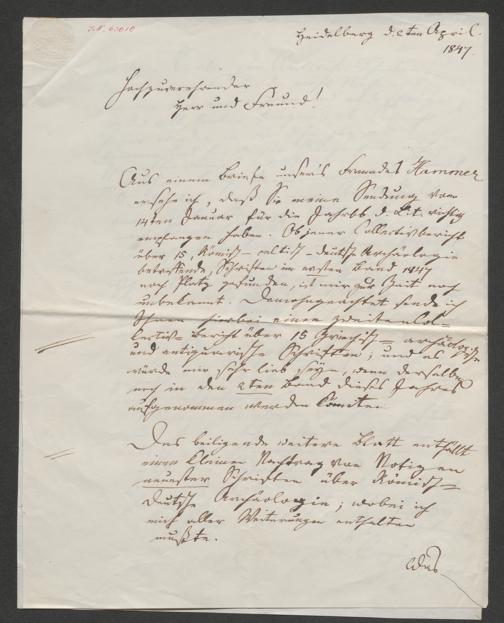 J.N. 63010
Heidelberg d. 2ten April.
1847.
Hochzuverehrender
Herr und Freund!
Aus einem Briefe unsers Freundes Hammer
ersehe ich, daß Sie meine Sendung vom
14ten Januar für die Jahrb. d. Lit. richtig
empfangen haben. Ob jener Collectivbericht
über 15, Römisch-celtisch-deutsche Archäologie
betreffende, Schriften im ersten Band 1847
noch Platz gefunden, ist mir zur Zeit noch
unbekannt. Demohngeachtet sende ich
Ihnen hierbei einen zweiten Col-
lectiv-Bericht über 15 Griechisch-archäologische
und antiquarische Schriften; und es
würde mir sehr lieb seyn, wenn derselbe
noch in den 2ten Band dieses Jahres
aufgenommen werden könnte.
Das beiligende weitere Blatt enthält
einen kleinen Nachtrag von Notizen
neuester Schriften über Römisch-
deutsche Archäologie; wobei ich
mich aller Weiterungen enthalten
mußte.
Das